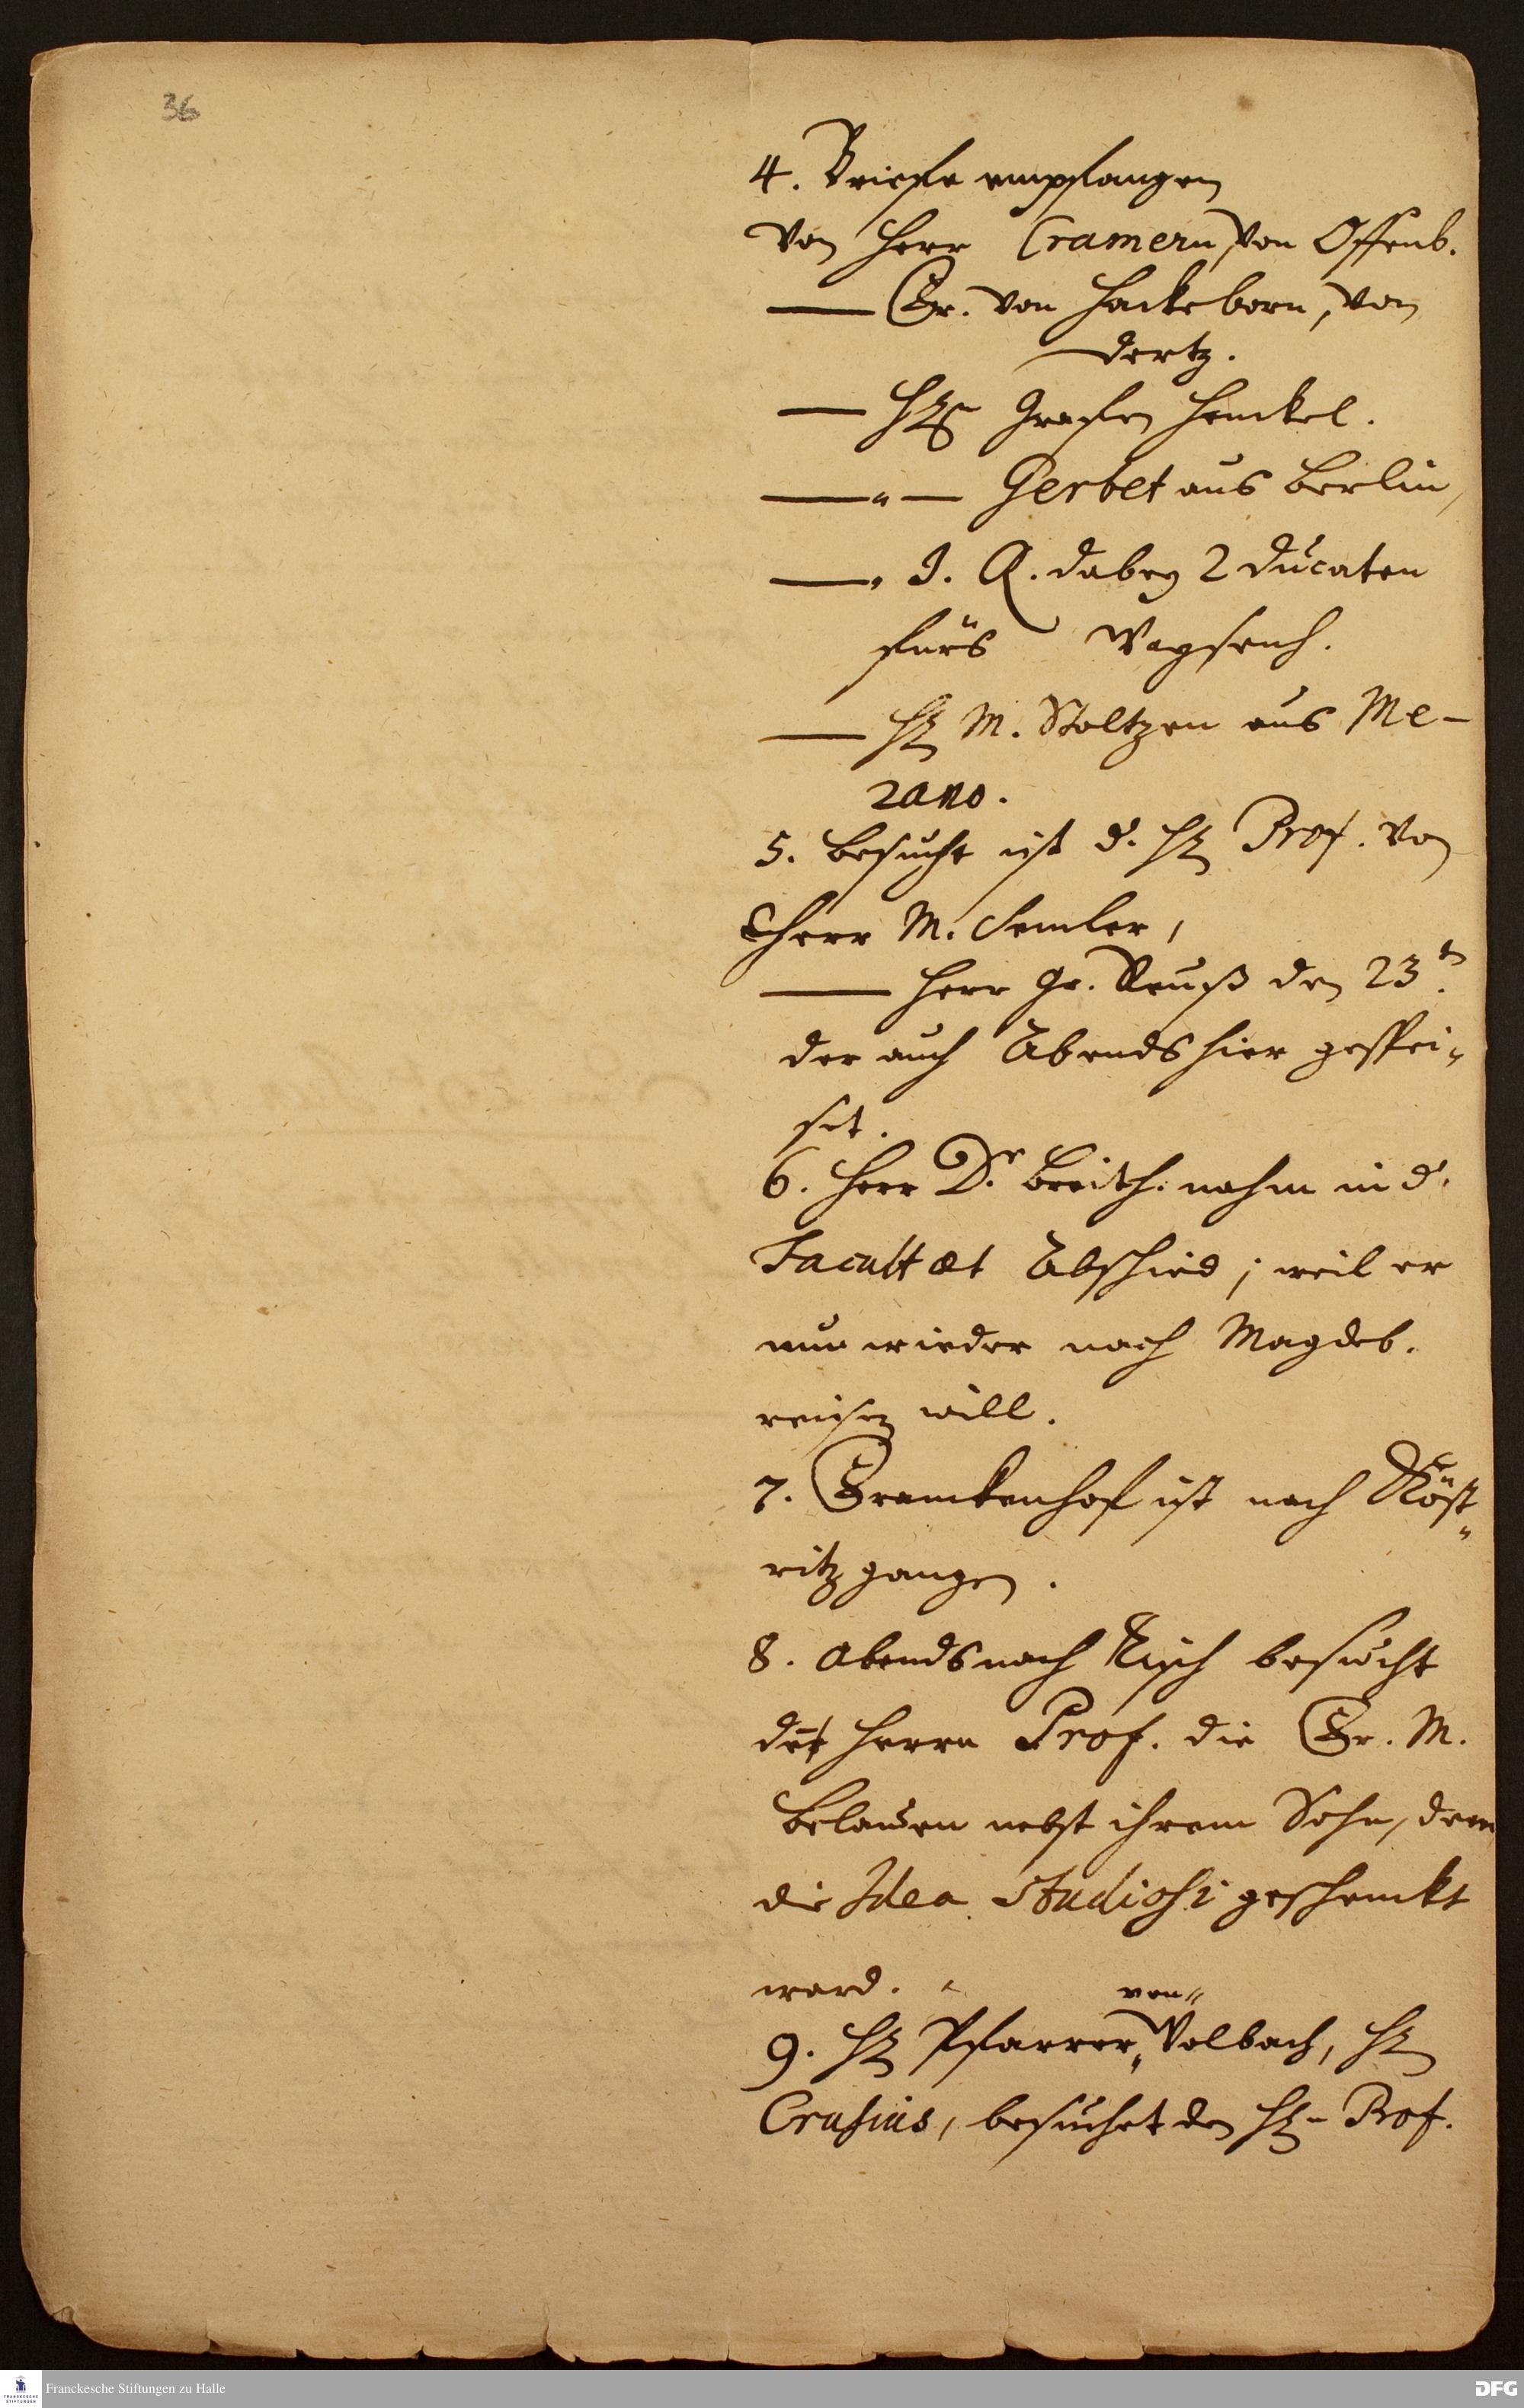 36
4. Briefe empfangen
von Herr Cramern, von Offenb.
— Fr. von Hackeborn, von
dertz.
— HE Grafen Henckel.
— " — Gerbet aus Berlin,
— " J. A. dabey 2 Ducaten
fürs Waysenh.
— HE M. Stoltzen aus Me-
rano.
5. besucht ist d. HE Prof. von
Herr M. Semler,
— Herr Gr. Reuß den 23t.
der auch Abends hier gespei-
set.
6. Herr Dr. Breith. nahm in d.
Facultæt Abschied; weil er
nun wieder nach Magdeb.
reisen will.
7. Franckenhof ist nach Köst-
ritz gangen.
8. Abends nach Tisch besucht
den Herrn Prof. die Fr. M.
nebst ihrem Sohn, dem
die Idea Studiosi geschenckt
ward.
von
9. HE Pfarrer, Volbach, HE
Crusius, besuchet den HE Prof.
Franckesche Stiftungen zu Halle
FRANCKESCHE STIFTUNGEN
DFG